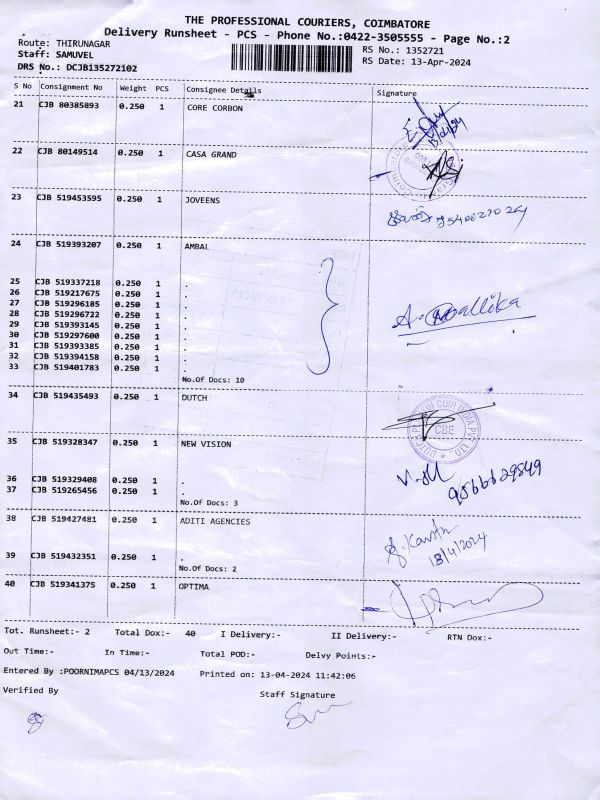 THE PROFESSIONAL COURIERS, COIMBATORE
Delivery Runsheet - PCS - Phone No.:0422-3505555 - Page No.:2
Route: THIRUNAGAR
RS No.: 1352721
Staff: SAMUVEL
RS Date: 13-Apr-2024
DRS No.: DCJB135272102
S No Consignment No Weight PCS Consignee Details Signature
21 CJB 80385893 0.250 1 CORE CORBON
22 CJB 80149514 0.250 1 CASA GRAND
23 CJB 519453595 0.250 1 JOVEENS
24 CJB 519393207 0.250 1 AMBAL
25 CJB 519337218 0.250 1 .
26 CJB 519217675 0.250 1 .
27 CJB 519296185 0.250 1 .
28 CJB 519296722 0.250 1 .
29 CJB 519393145 0.250 1 .
30 CJB 519297600 0.250 1 .
31 CJB 519393385 0.250 1 .
32 CJB 519394158 0.250 1 .
33 CJB 519401783 0.250 1 .
A. Mallika
No.Of Docs: 10
34 CJB 519435493 0.250 1 DUTCH
CBE
35 CJB 519328347 0.250 1 NEW VISION
36 CJB 519329408 0.250 1 .
37 CJB 519265456 0.250 1 .
9566629849
No.Of Docs: 3
38 CJB 519427481 0.250 1 ADITI AGENCIES
13/4/2024
39 CJB 519432351 0.250 1 .
No.Of Docs: 2
40 CJB 519341375 0.250 1 OPTIMA
Tot. Runsheet:- 2 Total Dox:- 40 I Delivery:- II Delivery:- RTN Dox:-
Out Time:- In Time:- Total POD:- Delvy Points:-
Entered By :POORNIMAPCS 04/13/2024 Printed on: 13-04-2024 11:42:06
Verified By Staff Signature